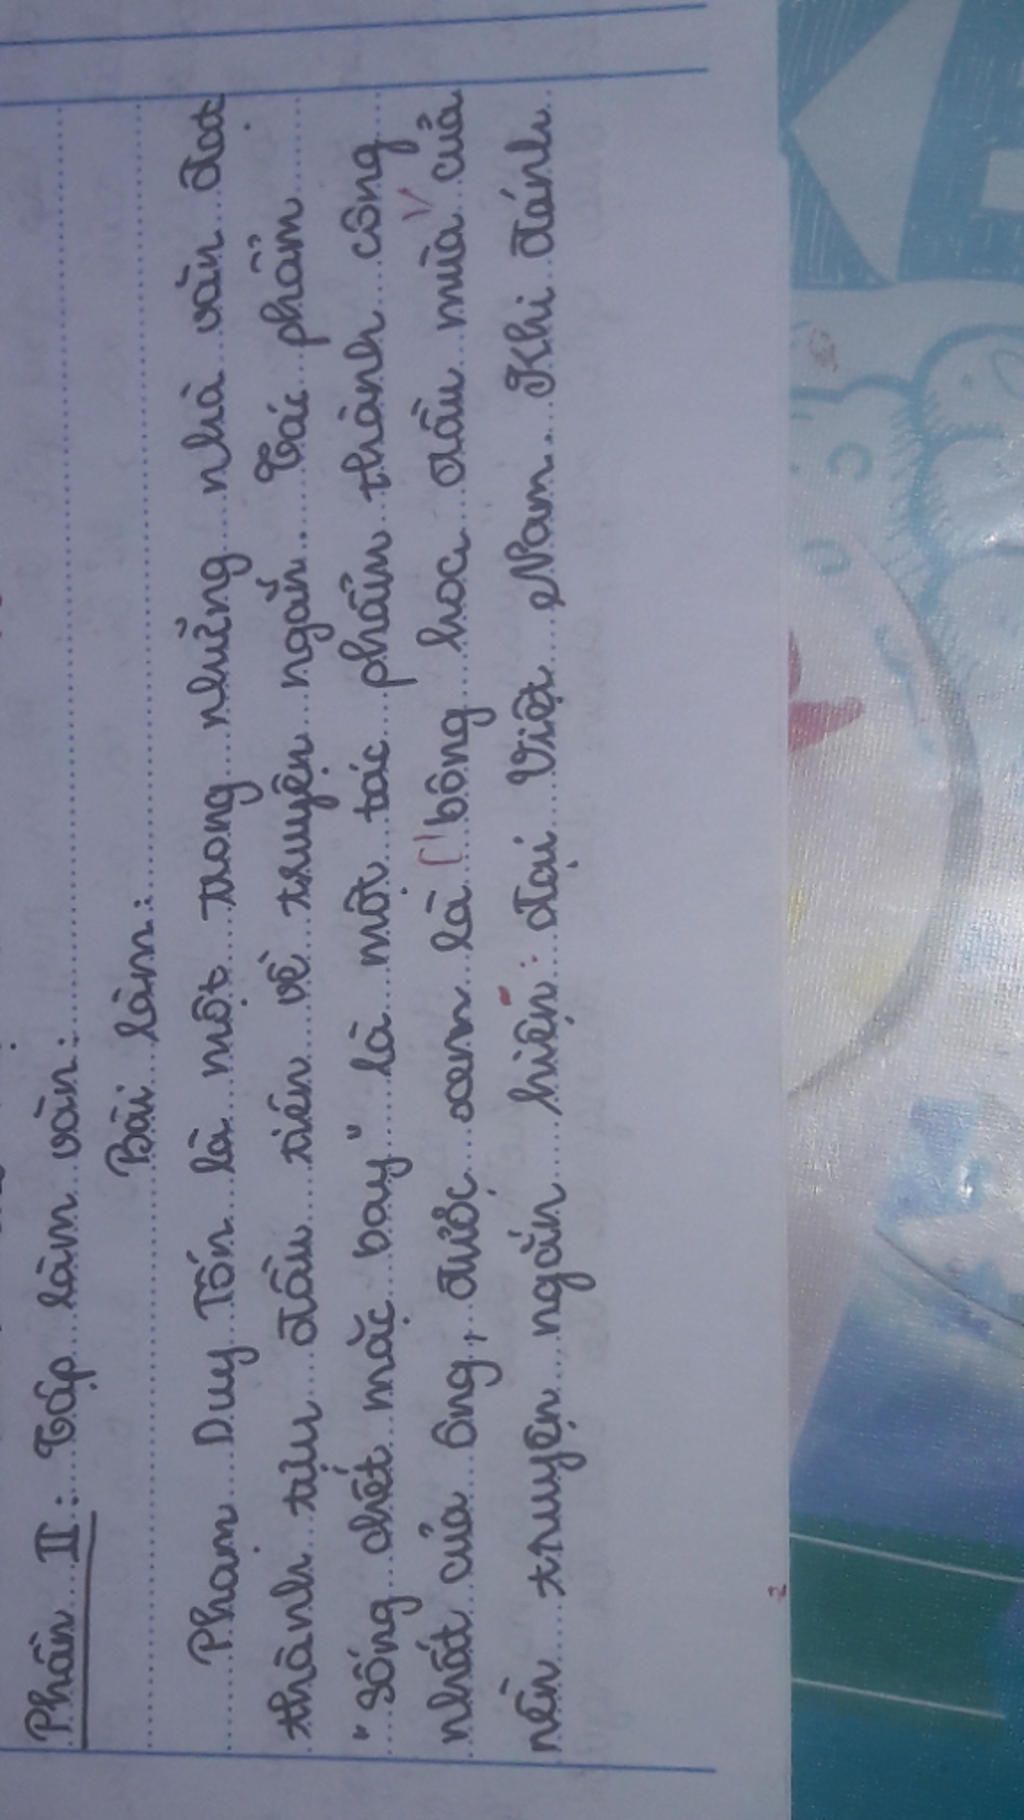 Phần II: Tập làm văn:
Bài làm:
Phạm Duy Tốn là một trong những nhà văn đạt
thành tựu đầu tiên về truyện ngắn. Tác phẩm
"Sống chết mặc bay" là một tác phẩm thành công
nhất của ông, được xem là "bông hoa đầu mùa" của
nền truyện ngắn hiện đại Việt Nam. Khi đánh